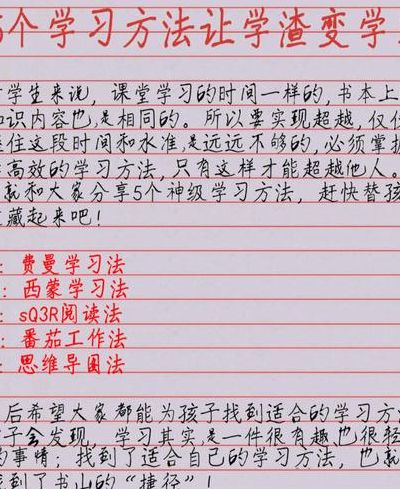 个学习方法让学渣变学
学生来说，课堂学习的时间一样的，书本上
识内容也是相同的。所以要实现超越，仅
住这段时间和水准是远远不够的，必须掌握
高效的学习方法，只有这样才能超越他人。
就和大家分享5个神级学习方法，赶快替孩
藏起来吧！
：费曼学习法
：西蒙学习法
：sQ3R阅读法
：番茄工作法
：思维导图法
后希望大家都能为孩子找到适合的学习方
子会发现，学习其实是一件很有趣也很轻
的事情；找到了适合自己的学习方法，也就
找到了书山的“捷径”！